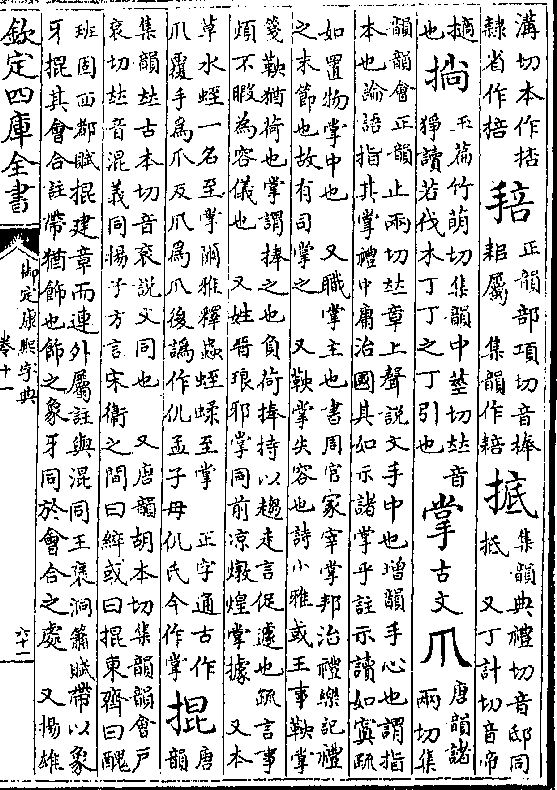 溝切本作掊
隸省作掊
㨍
正韻部項切音捧
耜屬 集韻作耤
掋
集韻典禮切音邸同
抵 又丁計切音帝
擿
也
𢵄
玉篇竹萌切集韻中莖切𠀤音
猙讀若伐木丁丁之丁引也
掌
古文
爪
唐韻諸
兩切集
韻韻會正韻止兩切𠀤章上聲說文手中也增韻手心也謂指
本也論語指其掌禮中庸治國其如示諸掌乎註示讀如寘疏
如置物掌中也 又職掌主也書周官冢宰掌邦治禮樂記禮
之末節也故有司掌之 又鞅掌失容也詩小雅或王事鞅掌
箋鞅猶荷也掌謂捧之也負荷捧持以趨走言促遽也疏言事
煩不暇為容儀也 又姓晉琅邪掌同前凉燉煌掌據 又本
草水蛭一名至掌爾雅釋蟲蛭蝚至掌 正字通古作
爪覆手爲爪反爪爲爪後譌作仉孟子母仉氏今作掌
掍
唐
韻
集韻𠀤古本切音衮說文同也 又唐韻胡本切集韻韻會戸
衮切𠀤音混義同揚子方言宋衛之間曰綷或曰掍東齊曰醜
班固西都賦掍建章而連外屬註與混同王襃洞簫賦帶以象
牙掍其會合註帶猶飾也飾之象牙同於會合之處 又揚雄
欽定四庫全書
御定康熙字典
卷十一
六十一